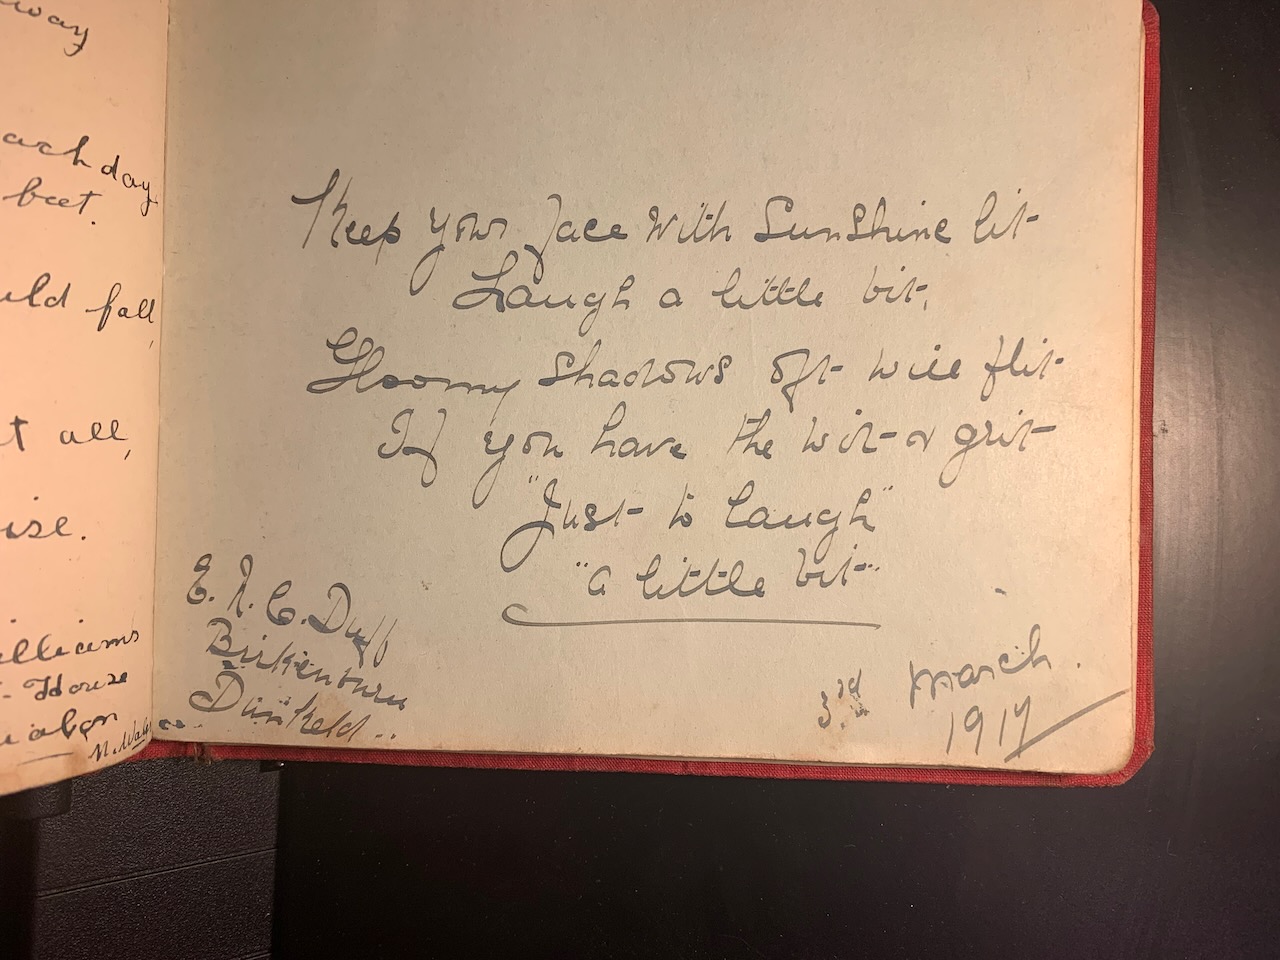 way
each day
beet.
uld fall,
t all,
ise.
illiams
House
N. Wales
Keep your face With SunShine lit
Laugh a little bit,
Gloomy Shadows oft will flit
If you have the Wit & grit
"Just to laugh"
"a little bit"
E. A. C. Duff
Birkenburn
Dunkeld..
3rd March.
1917